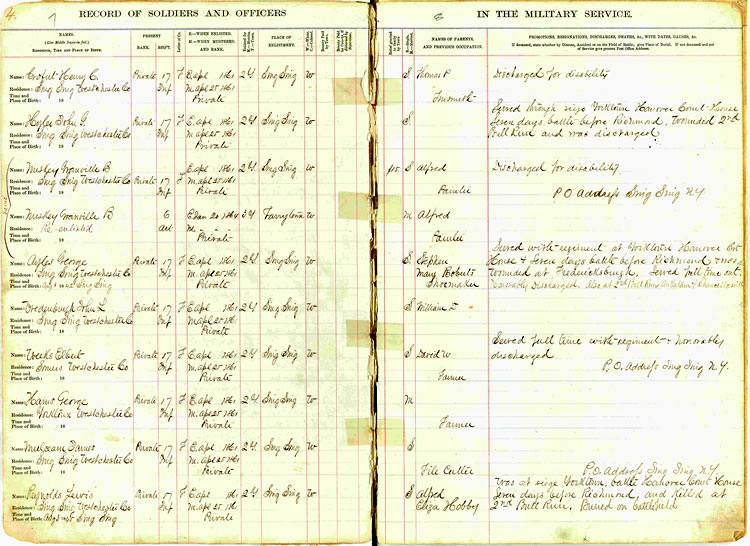 4. 7
RECORD OF SOLDIERS AND OFFICERS
8
IN THE MILITARY SERVICE.
NAMES.
(Give Middle Name in full.)
RESIDENCE, TIME AND PLACE OF BIRTH.
PRESENT
RANK.
E.—WHEN ENLISTED.
M.—WHEN MUSTERED,
AND RANK.
PLACE OF
ENLISTMENT.
NAMES OF PARENTS,
AND PREVIOUS OCCUPATION.
PROMOTIONS, RESIGNATIONS, DISCHARGES, DEATHS, &c., WITH DATES, CAUSES, &c.
Name: Crofut Henry C Private 17 F E apl 1861 2 y Sing Sing W S Thomas P Discharged for disability
Residence: Sing Sing Westchester Co Inf M apl 25 1861
Time and
Place of Birth: 18 Private Tinsmith
Served through siege Yorktown Hanover Court House
Name: John G Private 17 F E apl 1861 2 y Sing Sing W S Seven days battle before Richmond, Wounded 2nd
Residence: Sing Sing Westchester Co Inf M apl 25 1861 Bull Run and was discharged
Time and
Place of Birth: 18 Private
Name: Granville B E apl 1861 2 y Sing Sing W S Alfred Discharged for disability
Residence: Sing Sing Westchester Co Private 17 F M apl 25 1861
Time and
Place of Birth: 18 Inf Private Painter P O Address Sing Sing N.Y.
Name: Granville B 6 E Jan 20 1864 3 y Tarrytown W M Alfred
Residence: Re enlisted Art M
Time and
Place of Birth: 18 Private Painter
Served with regiment at Yorktown Hanover Crt
Name: George Private 17 F E apl 1861 2 y Sing Sing W S Stephen House & Seven days battle before Richmond & was
Residence: Sing Sing Westchester Co Inf M apl 25 1861 Mary Roberts wounded at Fredericksburgh. Served full time out.
Time and
Place of Birth: Private Shoemaker Honorably Discharged. Also at 2nd Bull Run Antietam & Chancellorsville
Name: Vredenburgh John L Private 17 F E apl 1861 2 y Sing Sing W S William
Residence: Sing Sing Westchester Co Inf M apl 25 1861
Time and
Place of Birth: 18 Private
Served full time with regiment & honorably
Name: Weeks Elbert Private 17 F E apl 1861 2 y Sing Sing W S David W discharged
Residence: Somers Westchester Co Inf M apl 25 1861 P.O. Address Sing Sing N.Y.
Time and
Place of Birth: 18 Private Farmer
Name: George Private 17 F E apl 1861 2 y Sing Sing W M
Residence: Yorktown Westchester Co Inf M apl 25 1861
Time and
Place of Birth: 18 Private Farmer
Name: James Private 17 F E apl 1861 2 y Sing Sing W S
Residence: Sing Sing Westchester Co Inf M apl 25 1861
Time and
Place of Birth: 18 Private File Cutter P.O. Address Sing Sing N.Y.
Was at seige Yorktown, battle Hanover Court House
Name: Reynolds Lewis Private 17 F E apl 1861 2 y Sing Sing W S Alfred Seven days before Richmond, and Killed at
Residence: Sing Sing Westchester Co Inf M apl 25 1861 Eliza Hobby 2nd Bull Run. Buried on battlefield
Time and
Place of Birth: Sing Sing Private